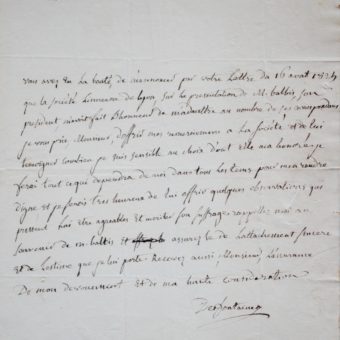 vous avez eu la bonté, de m'annoncer par votre lettre du 16 avril 1824
que la société Linneenne de Lyon, sur la présentation de M. balbis, son
président m'avoit fait l'honneur de m'admettre au nombre de ses correspondans
je vous prie, Monsieur, d'offrir mes remercimens a la Société et de lui
temoigner combien je suis sensible au choix dont elle m'a honoré. je
ferai tout ce qui dependra de moi dans tous les tems pour m'en rendre
digne et je serois tres heureux de lui offrir quelques observations qui
pussent lui etre agreables et meriter son suffrage. rappellez moi au
souvenir de m. balbis et assurez le de l'attachement sincere
et de l'estime que je lui porte. Recevez aussi, Monsieur, l'assurance
de mon devouement et de ma haute consideration
Desfontaines